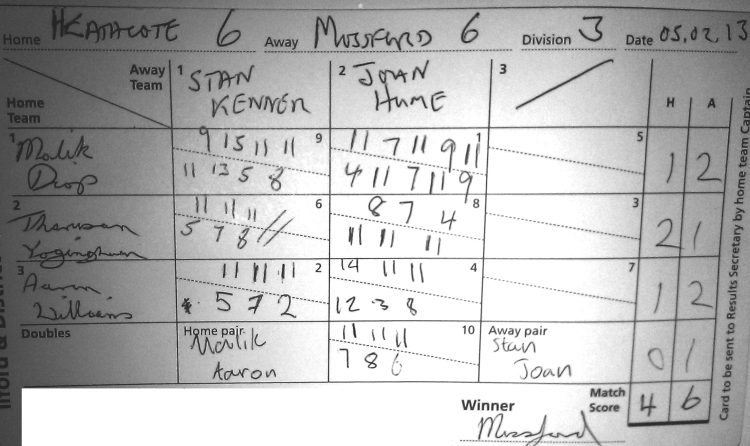 Home HEATHCOTE 6 Away MOSSFORD 6 Division 3 Date 05.02.13
Away Team 1 STAN KENNER 2 JOAN HUME 3
Home Team H A
1 Malik Drop 9 15 11 11 9 11 7 11 9 11 1 5 1 2
11 13 5 8 4 11 7 11 9
2 11 11 11 6 8 7 4 8 3 2 1
5 7 8 11 11 11
3 Aaron Williams 11 11 11 2 14 11 11 4 7 1 2
5 7 2 12 3 8
Doubles Home pair 11 11 11 10 Away pair 0 1
Malik 7 8 6 Stan
Aaron Joan
Winner Match Score 4 6
Mossford
Card to be sent to Results Secretary by home team Captain